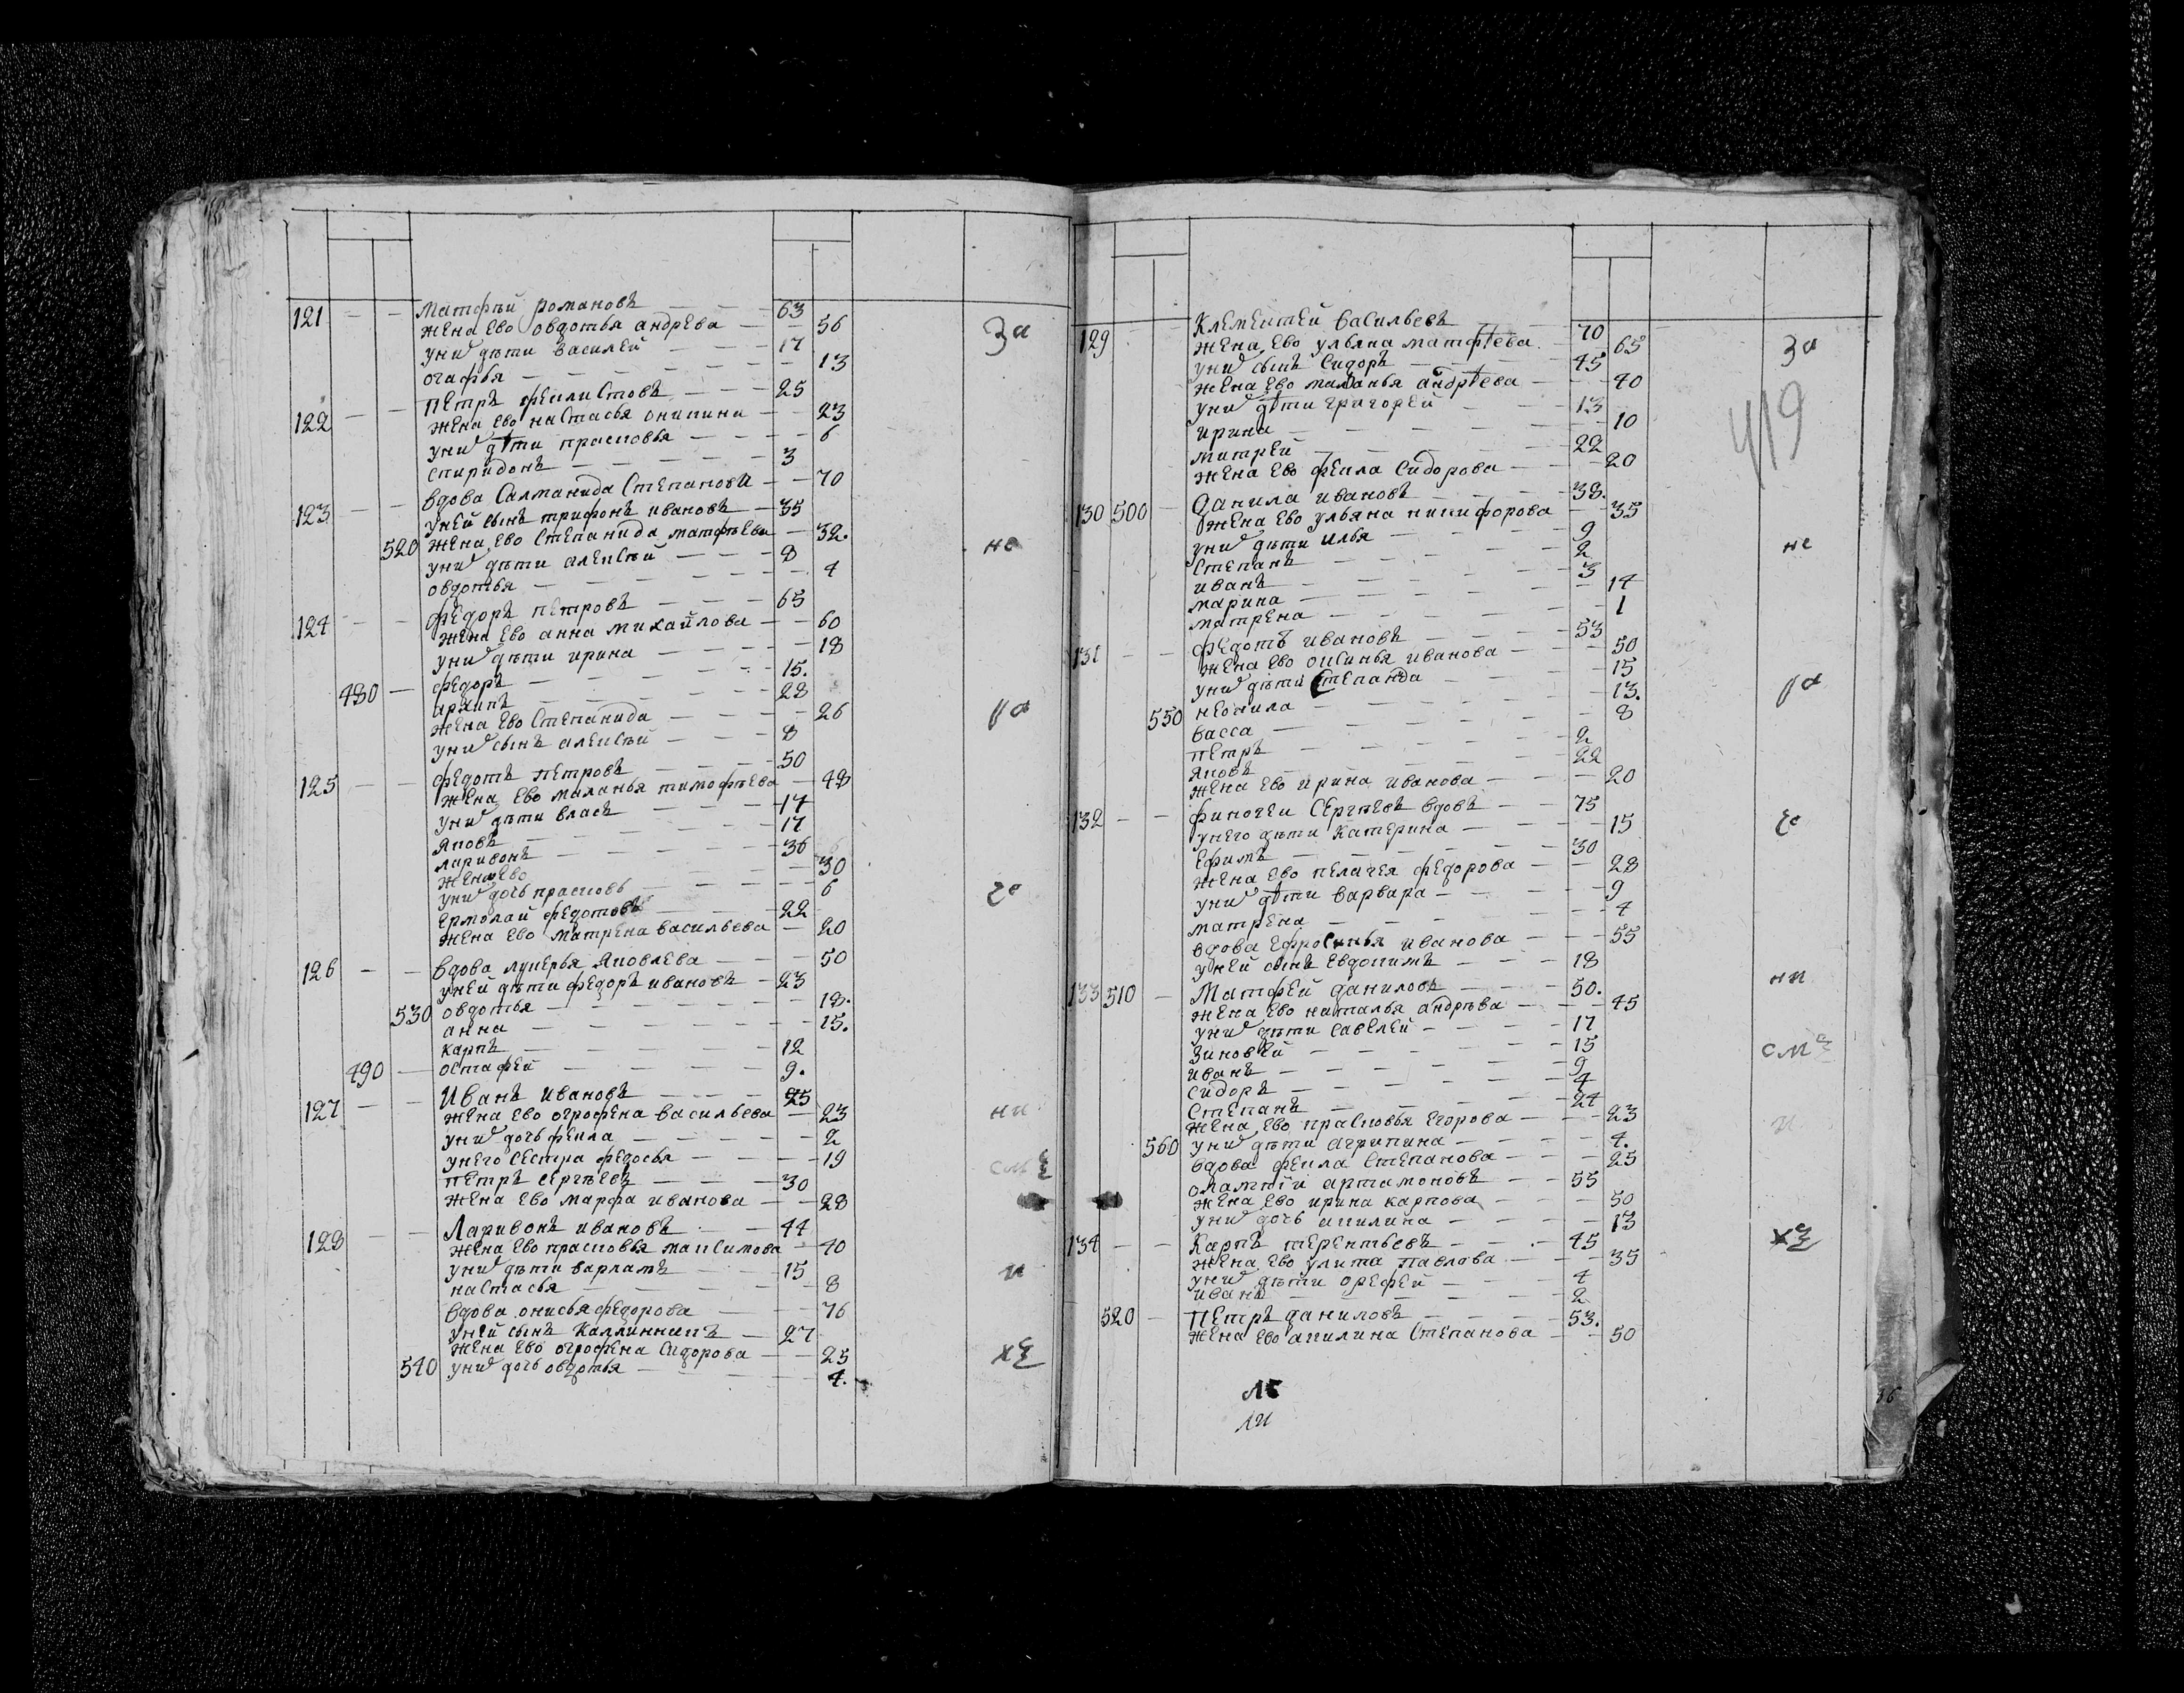 121 — — Матфѣй романовъ — — — 63
жена ево овдотья андрева — — 56
За
униⷯ дѣти василей — — — 17
огафья — — — — 13
122 — — петръ феклистовъ — — — 25
жена ево настасья онипина — — 23
униⷯ дѣти прасковья — — — 6
спиридонъ — — — — 3
123 — — вдова Салманида Степанова — — 70
уней сынъ трифонъ ивановъ — 35
520 жена ево Степанида матфѣева — 32.
не
униⷯ дѣти алексѣй — — — 8
овдотья — — — — 4
124 — — федоръ петровъ — — — 65
жена ево анна михайлова — — 60
униⷯ дѣти ирина — — — — 18
480 — федоръ — — — — 15.
архипъ — — — — 28
жена ево Степанида — — — 26
униⷯ сынъ алексѣй — — — 8
125 — — федотъ петровъ — — — 50
жена ево маланья тимофѣева — 48
униⷯ дѣти власъ — — — 17
яковъ — — — — 17
ларивонъ — — — — 36
жена ево — — — — 30
униⷯ дочь прасковь — — — 6
че
ермолай федотовъ — — — 22
жена ево матрена васильева — 20
126 — — вдова лукерья яковлева — — — 50
уней дѣти федоръ ивановъ — 23
530 овдотья — — — — 18.
анна — — — — 15.
карпъ — — — — 12
490 — остафей — — — — 9.
127 — — Иванъ ивановъ — — — 25
жена ево огрофена васильева — 23
ни
униⷯ дочь фекла — — — — 2
унего сестра федосья — — — 19
петръ сергѣевъ — — — 30
жена ево марфа иванова — — 28
128 — — Ларивонъ ивановъ — — 44
жена ево прасковья максимова — 40
униⷯ дѣти варламъ — — — 15
настасья — — — — 8
и
вдова онисья федорова — — — 76
уней сынъ Каллинникъ — 27
жена ево огрофена Сидорова — — 25
540 униⷯ дочь овдотья — — — 4.
129 — — Клементей васильевъ — — — 70
жена ево ульяна матфѣева — 65
За
униⷯ сынъ Сидоръ — — — 45
жена ево маланья андрѣева — — 40
419
униⷯ дѣти григорей — — — 13
ирина — — — — 10
митрей — — — — 22
жена ево фекла Сидорова — — 20
130 500 — Данила ивановъ — — — 38.
жена ево ульяна никифорова — — 35
униⷯ дѣти илья — — — 9
не
Степанъ — — — — 2
иванъ — — — — 3
марина — — — — 14
матрена — — — — 1
131 — — федотъ ивановъ — — — 53
жена ево оксинья иванова — — — 50
униⷯ дѣти Степанда — — — 15
550 неонила — — — — 13.
васса — — — — 8
петръ — — — — 2
яковъ — — — — 22
жена ево ирина иванова — — — 20
132 — — финогеи Сергѣевъ вдовъ — — 75
унего дѣти Катерина — — — 15
ефимъ — — — — 30
жена ево пелагея федорова — — 28
униⷯ дѣти варвара — — — 9
матрена — — — — 4
вдова Ефросинья иванова — — — 55
уней сынъ Евдокимъ — — — 18
133 510 — Матфей даниловъ — — — 50.
ни
жена ево наталья андрѣва — — 45
униⷯ дѣти Савелей — — — 17
Зиновей — — — — 15
иванъ — — — — 9
Сидоръ — — — — 4
Степанъ — — — — 24
жена ево прасковья Егорова — — 23
560 униⷯ дѣти агрипина — — — 4.
вдова фекла Степанова — — — 25
артамоновъ — — 55
жена ево ирина карпова — — — 50
униⷯ дочь акилина — — — 13
134 — — Карпъ терентьевъ — — — 45
жена ево улита павлова — — — 35
униⷯ дѣти орефей — — — 4
иванъ — — — — 2
520 — Петръ даниловъ — — — 53.
жена ево акилина Степанова — — 50